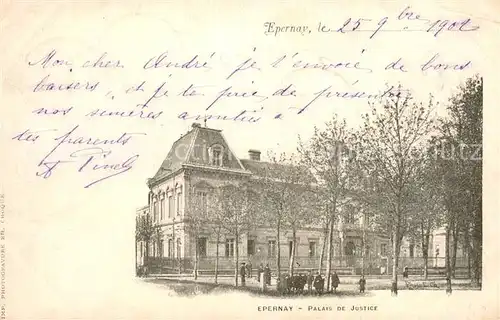 Epernay, le 25 9bre 1902
Mon cher André je t'envoie de bons
baisers, et je te prie de présenter
nos sincères amitiés à
tes parents
EPERNAY – PALAIS DE JUSTICE